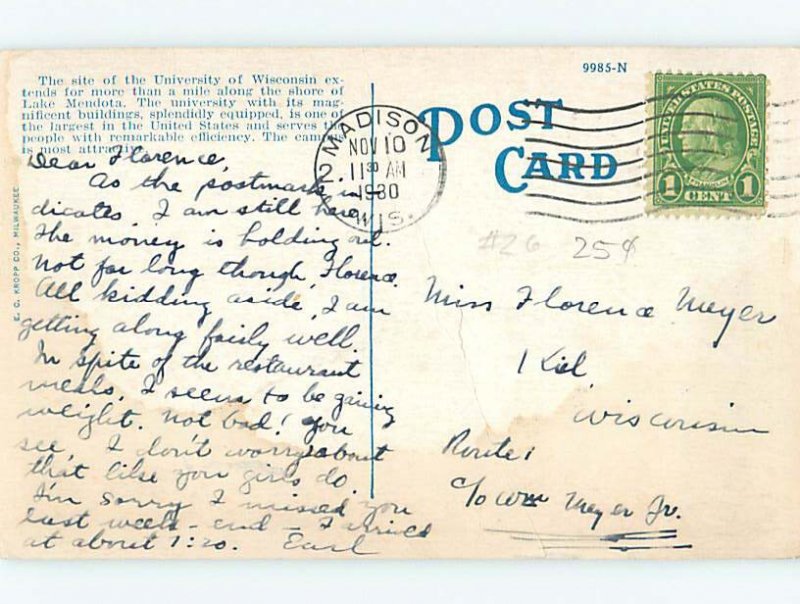 The site of the University of Wisconsin ex-
tends for more than a mile along the shore of
Lake Mendota. The university with its mag-
nificent buildings, splendidly equipped, is one of
the largest in the United States and serves the
people with remarkable efficiency. The campus
is most attractive.
Dear Florence,
As the postmark in
dicates I am still here.
The money is holding out.
Not for long though, Florence.
All kidding aside, I am
getting along fairly well.
In spite of the restaurant
meals, I seem to be gaining
weight. Not bad! You
see, I don't worry about
that like you girls do.
I'm sorry I missed you
last week-end - I arrived
at about 1:20. Earl
E. C. KROPP CO., MILWAUKEE
MADISON
NOV 10
2 11 30 AM
1930
WIS.
9985-N
POST
CARD
UNITED STATES POSTAGE
FRANKLIN
1 CENT 1
#26 25¢
Miss Florence Meyer
Kiel
Wisconsin
Route 1
c/o Wm Meyer Jr.